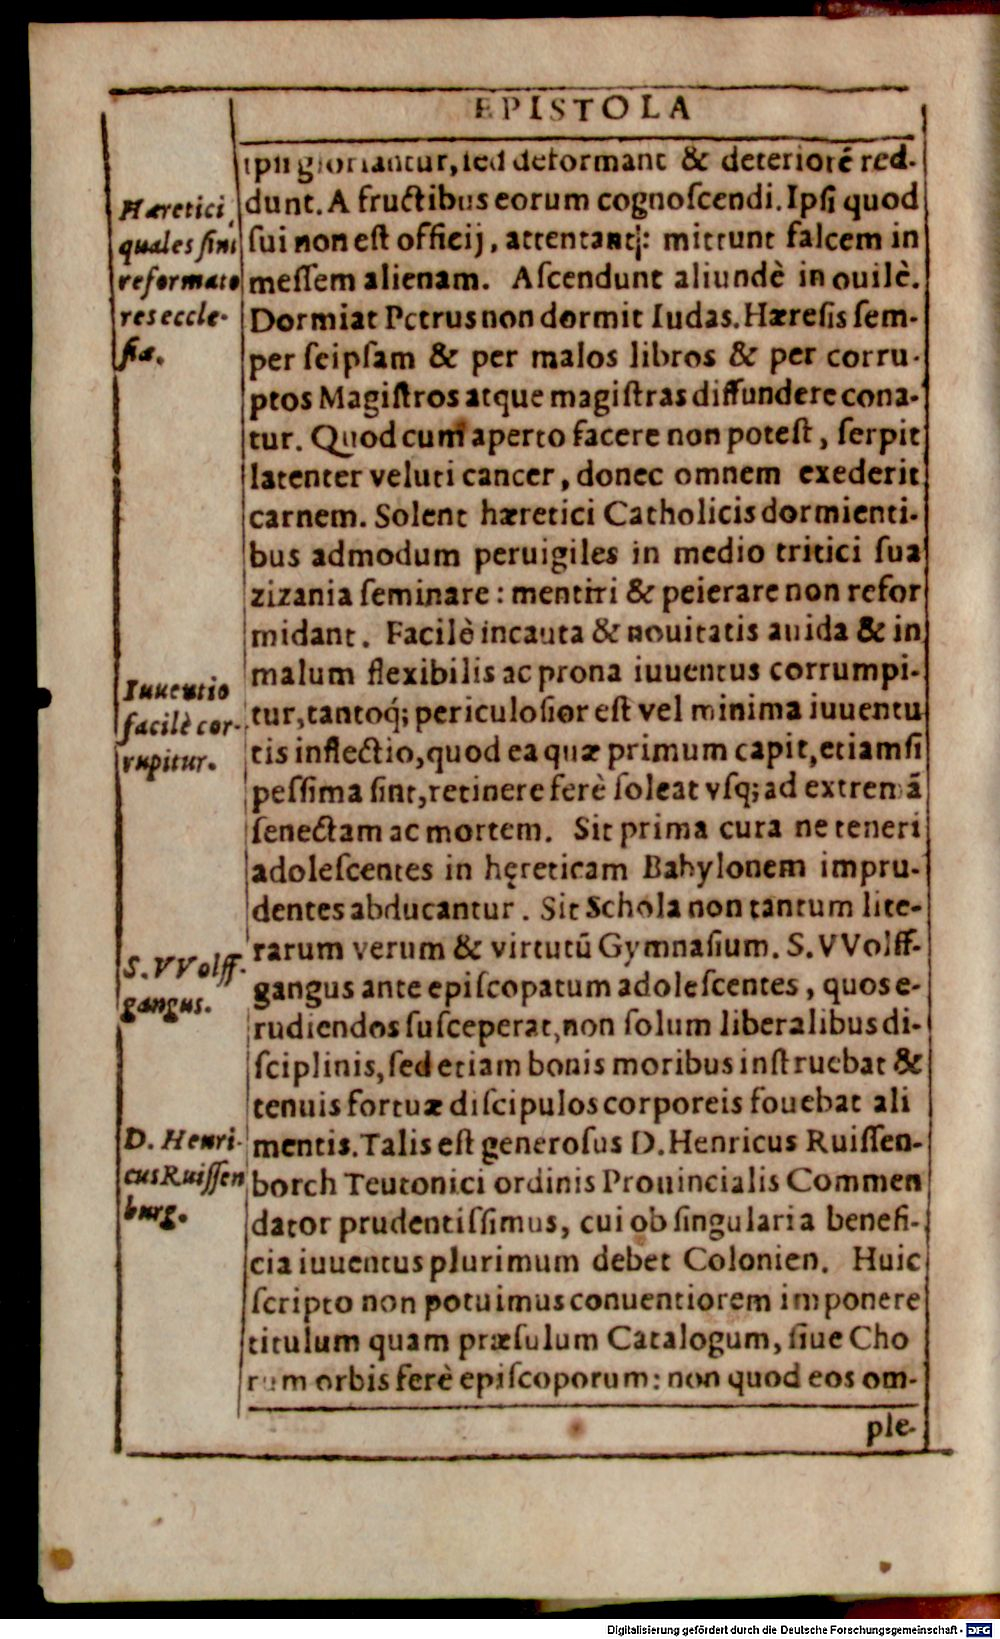 EPISTOLA
ipsi gloriantur, sed deformant & deteriorē red-
dunt. A fructibus eorum cognoscendi. Ipsi quod
sui non est officij, attentant: mittunt falcem in
messem alienam. Ascendunt aliundè in ouilè.
Dormiat Petrus non dormit Iudas. Hæresis sem-
per seipsam & per malos libros & per corru-
ptos Magistros atque magistras diffundere cona-
tur. Quod cum aperto facere non potest, serpit
latenter veluti cancer, donec omnem exederit
carnem. Solent hæretici Catholicis dormienti-
bus admodum peruigiles in medio tritici sua
zizania seminare: mentiri & peierare non refor
midant. Facilè incauta & nouitatis auida & in
malum flexibilis ac prona iuuentus corrumpi-
tur, tantoq́; periculosior est vel minima iuuentu
tis inflectio, quod ea quæ primum capit, etiamsi
pessima sint, retinere ferè soleat vsq; ad extremā
senectam ac mortem. Sit prima cura ne teneri
adolescentes in hęreticam Babylonem impru-
dentes abducantur. Sit Schola non tantum lite-
rarum verum & virtutū Gymnasium. S. VVolff-
gangus ante episcopatum adolescentes, quos e-
rudiendos susceperat, non solum liberalibus di-
sciplinis, sed etiam bonis moribus instruebat &
tenuis fortuæ discipulos corporeis fouebat ali
mentis. Talis est generosus D. Henricus Ruissen-
borch Teutonici ordinis Prouincialis Commen
dator prudentissimus, cui ob singularia benefi-
cia iuuentus plurimum debet Colonien. Huic
scripto non potuimus conuentiorem imponere
titulum quam præsulum Catalogum, siue Cho
rum orbis ferè episcoporum: non quod eos om-
ple-
Hæretici
quales sint
reformato
res eccle-
siæ.
Iuuentio
facilè cor-
rupitur.
S. VVolff-
gangus.
D. Henri-
cus Ruissen
burg.
Digitalisierung gefördert durch die Deutsche Forschungsgemeinschaft - DFG